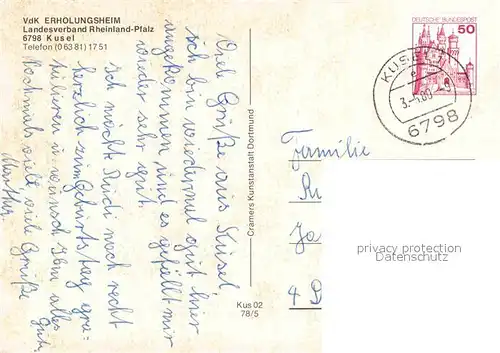 VdK ERHOLUNGSHEIM
Landesverband Rheinland-Pfalz
6798 Kusel
Telefon (06381) 1751
Viele Grüße aus Kusel
ich bin wiedermal gut hier
angekommen und es gefällt mir
wieder sehr gut
ich möchte Rudi noch recht
herzlich zum Geburtstag gra-
tulieren u. wünsch Ihm alles
Gute.
Nochmals viele viele Grüße
Cramers Kunstanstalt Dortmund
Kus 02
78/5
DEUTSCHE BUNDESPOST
50
KUSEL
6798
Familie
4 D
privacy protection
Datenschutz